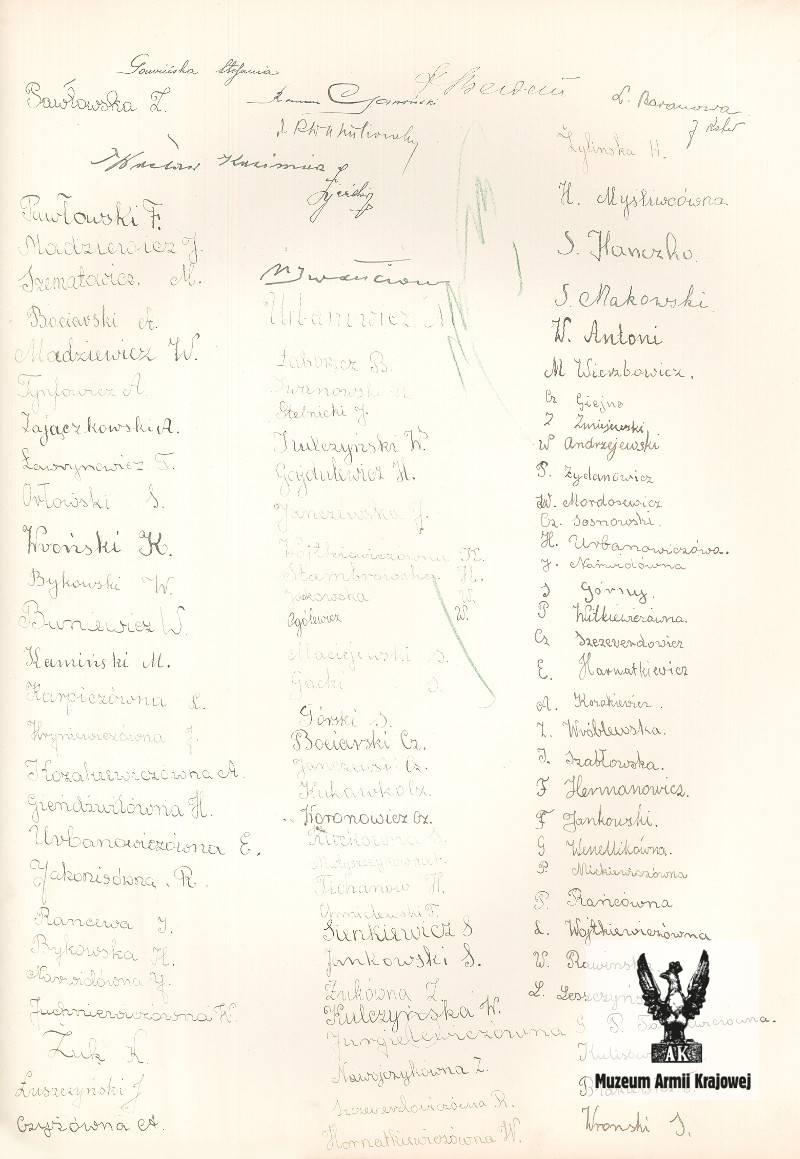 Gawińska Stefania
Pawłowska Z.
Roman
L. Baranowa
Żylińska H.
Wacław Kazimierz
Pawłowski F.
Madziewicz J.
Szematowicz. M.
Bociarski A.
Madziewicz W.
Tynfowicz A.
Zajączkowski A.
Ławrynowicz T.
Orłowski S.
Wroński K.
Bykowski W.
Buniewicz W.
Kamiński M.
Karpiczówna L.
Hryniewiczówna J.
Kozakiewiczówna A.
Giendźwiłówna H.
Urbanowiczówna E.
Jakonisówna. R.
Rancewa J.
Bykowska H.
Narwidówna J.
Juchniewiczówna W.
Żuk K
Łuszczyński J
Czyżówna A.
Urbanowicz M
Łabowicz B.
Iwanowski
Stelnicki J.
Kulczyński W.
Gajdulewicz H.
Janczewska J.
Wojtkiewiczówna K.
Stambrowska H.
W.
Ogólewicz W.
Maciejewski S.
Gacki S.
Górski S.
Bociarski Cz.
Janczewski Cz.
Kukawka Cz.
Woronowicz Cz.
Tichanow H.
Chmielewski F.
Sienkiewicz S
Jankowski S.
Żukówna Z
Kulczyńska W.
Jurgielewiczówna G
Nawojczykówna Z.
Szczewerdowiczówna R.
Hornatkiewiczówna W.
H. Mysliwcówna
S. Hanczko.
S. Makowski
W. Antoni
M Wierzbowicz.
Cz Giejno
Z Żmijewski
W Andrzejewski
P. Żydanowicz
W. Mordosewicz
Cz. Sosnowski.
H. Urbanowiczówa.
J. Narwidówna
S Górny.
P Witkiewiczówna.
Cz Szczeverdowicz
E. Harnatkiewicz
A. Kozakiewicz.
Z. Wróblewska.
J. Szabłowska.
F Hermanowicz.
F Jankowski.
G Wenellikówna.
P. Mickiewiczówna
P. Rańcówna
L. Wojtkiewiczówna
W. Rawińsk
L. Leszczyńs
P.
Wronski S.
AK
Muzeum Armii Krajowej